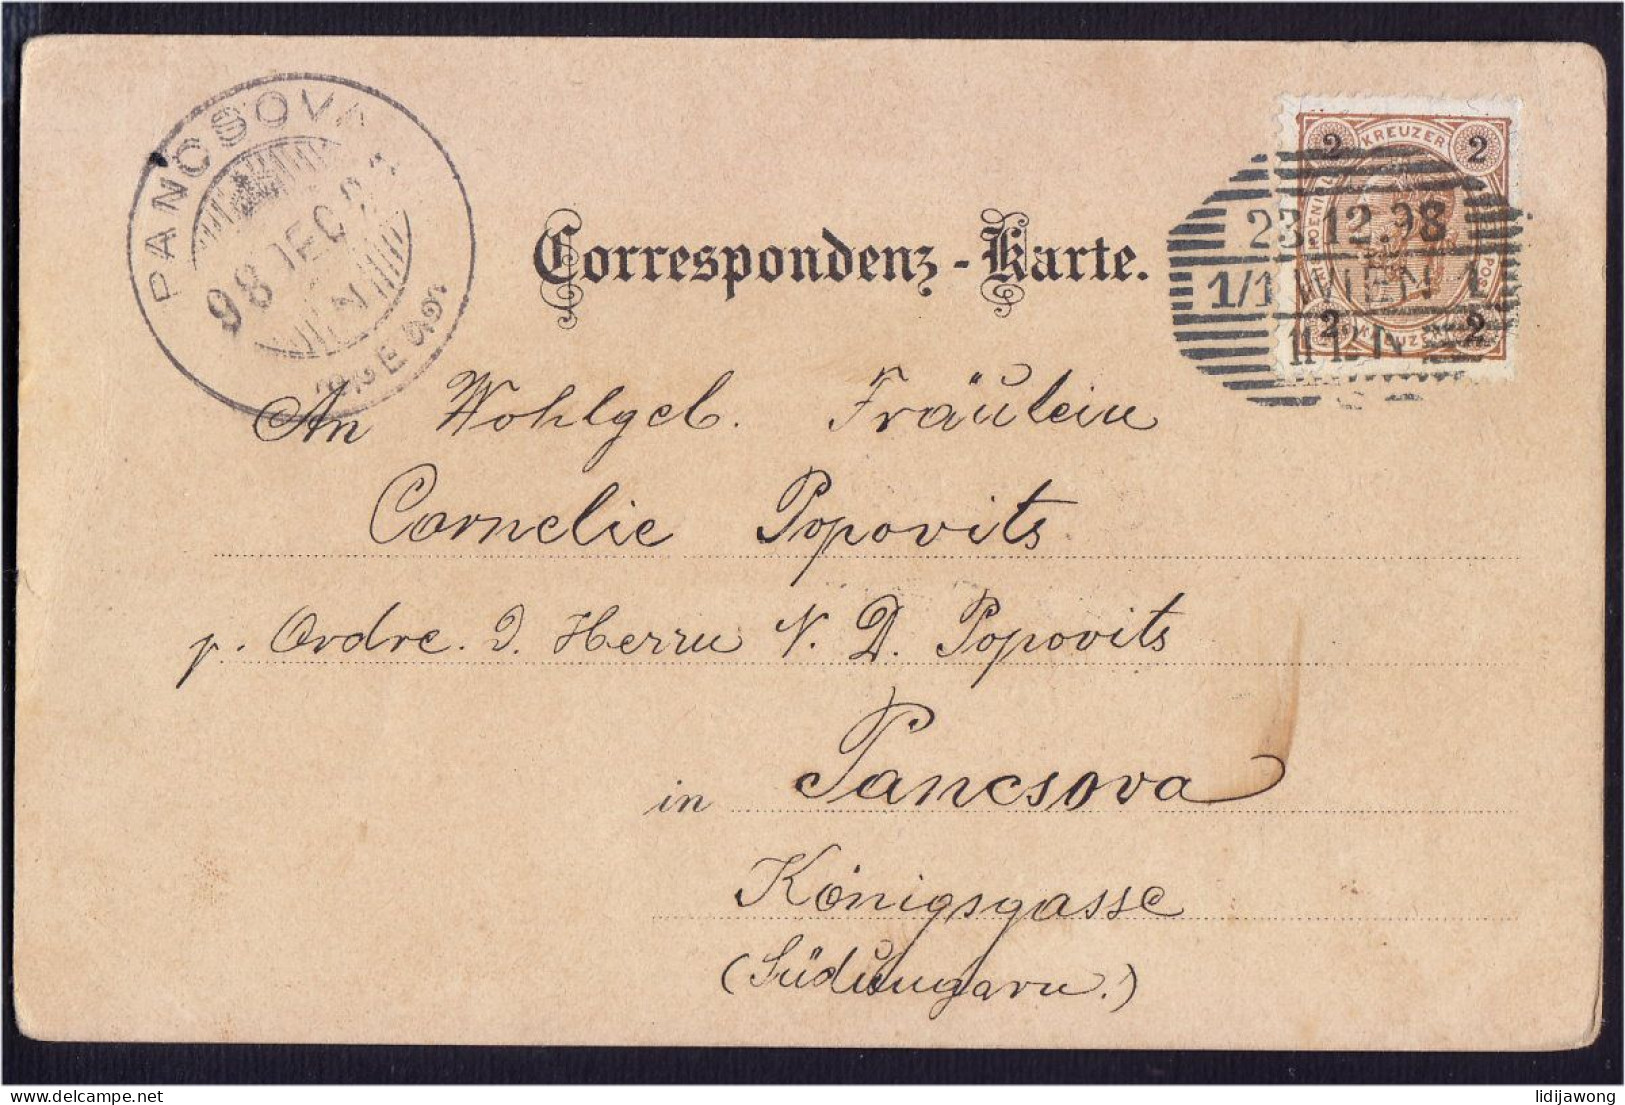 PANCSOVA
98 DEC
Correspondenz-Karte.
KREUZER
2 2
23.12.98
1/1 WIEN 1
2 2
An Wohlgeb. Fräulein
Cornelie Popovits
p. Ordre. D. Herrn N. D. Popovits
in Pancsova
Königsgasse
(Südungarn.)
lidijawong